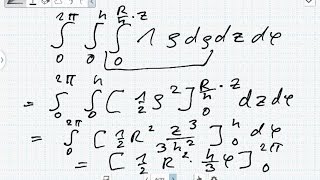 ∫₀^{2π} ∫₀^h ∫₀^{R/h · z} 1 ρ dρ dz dφ
= ∫₀^{2π} ∫₀^h [ ½ ρ² ]₀^{R/h · z} dz dφ
= ∫₀^{2π} [ ½ R² z³/3h² ]₀^h dφ
= [ ½ R² · h/3 φ ]₀^{2π}